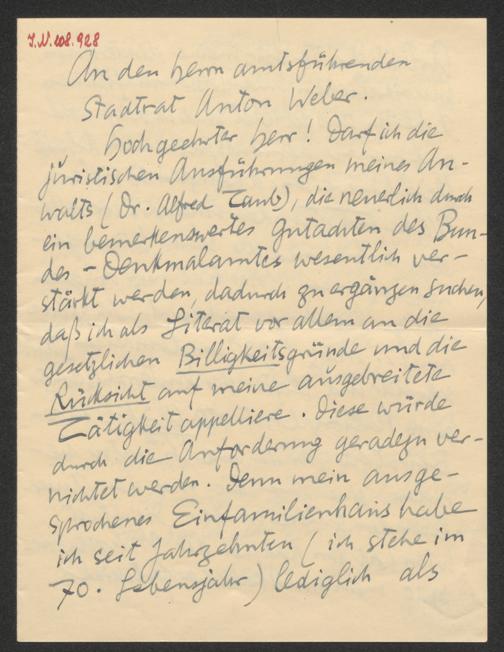 J.N. 108.928
An den Herrn amtsführenden
Stadtrat Anton Weber.
Hochgeehrter Herr! Darf ich die
juristischen Ausführungen meines An-
walts (Dr. Alfred Taub), die neuerlich durch
ein bemerkenswertes Gutachten des Bun-
des-Denkmalamtes wesentlich ver-
stärkt werden, dadurch zu ergänzen suchen,
daß ich als Literat vor allem an die
gesetzlichen Billigkeitsgründe und die
Rücksicht auf meine ausgebreitete
Tätigkeit appelliere. Diese würde
durch die Anforderung geradezu ver-
nichtet werden. Denn mein ausge-
sprochenes Einfamilienhaus habe
ich seit Jahrzehnten (ich stehe im
70. Lebensjahr) lediglich als